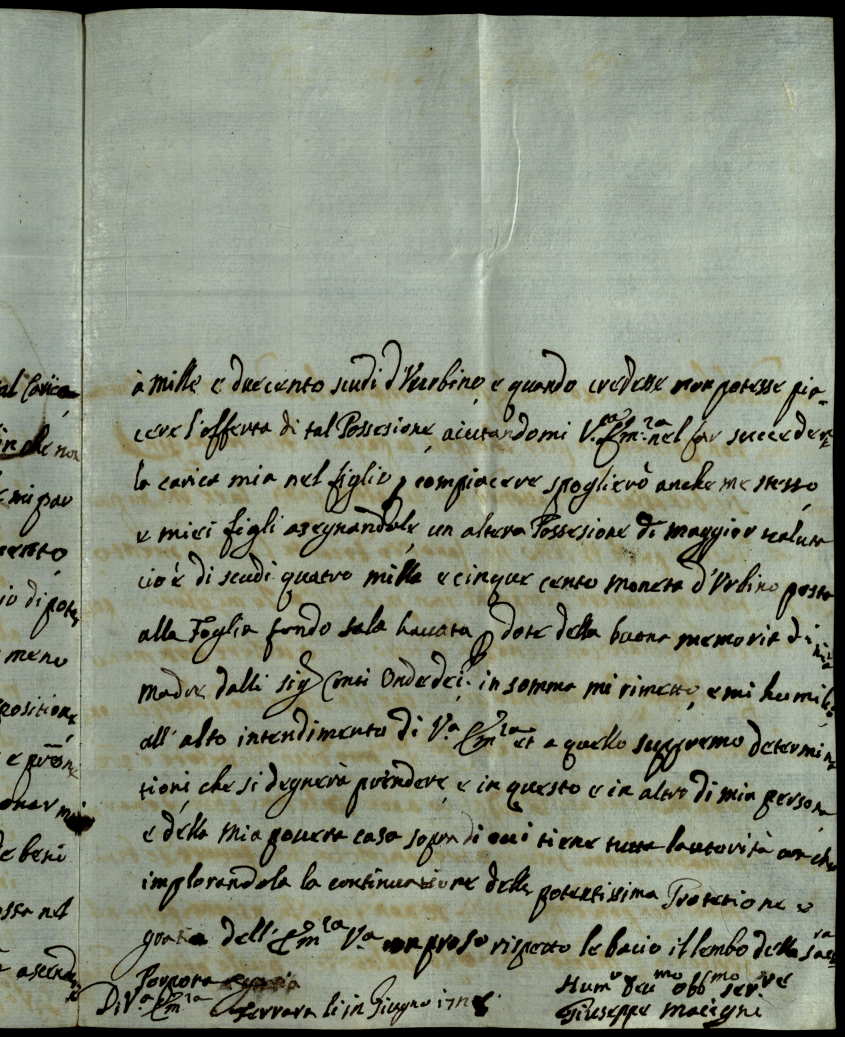 à mille e duecento scudi d'Vurbino, e quando credesse non potesse pia-
cere l'offerta di tal Possesione, aiutandomi V.a Em.za nel far succedere
la carica mia nel figlio, p compiacere spoglierò anche me stesso
e miei figli asegnandole un altera Possesione di maggior ualuta
cio'è di scudi quatro mille e cinque cento moneta d'Vrbino posta
alla Foglia fondo sala hauuta p dote della buona memoria di mia
madre dalli sig.i Conti Ondedei: in somma mi rimetto, e mi humilio
all'alto intendimento di V.a Em.za et a quello suppremo determina
tioni che si degnerà prendere, e in questo e in altro di mia persona
e della mia pouera casa sopra di cui tiene tutta lautorità anche
implorandola la continuatione della potentissima Protetione e
gratia dell'Em.za V.a con proso rispetto le bacio il lembo della Sacra
Porpora
Di V.a Em.za
Ferrara li in Giugno
Hum.o Deu.mo obb.mo ser.re
Giuseppe Macigni
al Carica
che non
mi par
di pote
meno
positione
e
onar mi
de beni
ossa nel